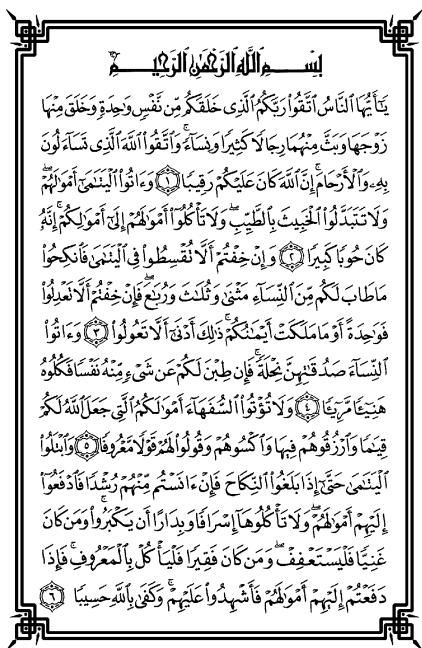 بِسْمِ ٱللَّهِ ٱلرَّحْمَٰنِ ٱلرَّحِيمِ
يَٰٓأَيُّهَا ٱلنَّاسُ ٱتَّقُوا۟ رَبَّكُمُ ٱلَّذِى خَلَقَكُم مِّن نَّفْسٍ وَٰحِدَةٍ وَخَلَقَ مِنْهَا
زَوْجَهَا وَبَثَّ مِنْهُمَا رِجَالًا كَثِيرًا وَنِسَآءً ۚ وَٱتَّقُوا۟ ٱللَّهَ ٱلَّذِى تَسَآءَلُونَ
بِهِۦ وَٱلْأَرْحَامَ ۚ إِنَّ ٱللَّهَ كَانَ عَلَيْكُمْ رَقِيبًا ١ وَءَاتُوا۟ ٱلْيَتَٰمَىٰٓ أَمْوَٰلَهُمْ ۖ
وَلَا تَتَبَدَّلُوا۟ ٱلْخَبِيثَ بِٱلطَّيِّبِ ۖ وَلَا تَأْكُلُوٓا۟ أَمْوَٰلَهُمْ إِلَىٰٓ أَمْوَٰلِكُمْ ۚ إِنَّهُۥ
كَانَ حُوبًا كَبِيرًا ٢ وَإِنْ خِفْتُمْ أَلَّا تُقْسِطُوا۟ فِى ٱلْيَتَٰمَىٰ فَٱنكِحُوا۟
مَا طَابَ لَكُم مِّنَ ٱلنِّسَآءِ مَثْنَىٰ وَثُلَٰثَ وَرُبَٰعَ ۖ فَإِنْ خِفْتُمْ أَلَّا تَعْدِلُوا۟
فَوَٰحِدَةً أَوْ مَا مَلَكَتْ أَيْمَٰنُكُمْ ۚ ذَٰلِكَ أَدْنَىٰٓ أَلَّا تَعُولُوا۟ ٣ وَءَاتُوا۟
ٱلنِّسَآءَ صَدُقَٰتِهِنَّ نِحْلَةً ۚ فَإِن طِبْنَ لَكُمْ عَن شَىْءٍ مِّنْهُ نَفْسًا فَكُلُوهُ
هَنِيٓـًٔا مَّرِيٓـًٔا ٤ وَلَا تُؤْتُوا۟ ٱلسُّفَهَآءَ أَمْوَٰلَكُمُ ٱلَّتِى جَعَلَ ٱللَّهُ لَكُمْ
قِيَٰمًا وَٱرْزُقُوهُمْ فِيهَا وَٱكْسُوهُمْ وَقُولُوا۟ لَهُمْ قَوْلًا مَّعْرُوفًا ٥ وَٱبْتَلُوا۟
ٱلْيَتَٰمَىٰ حَتَّىٰٓ إِذَا بَلَغُوا۟ ٱلنِّكَاحَ فَإِنْ ءَانَسْتُم مِّنْهُمْ رُشْدًا فَٱدْفَعُوٓا۟
إِلَيْهِمْ أَمْوَٰلَهُمْ ۖ وَلَا تَأْكُلُوهَآ إِسْرَافًا وَبِدَارًا أَن يَكْبَرُوا۟ ۚ وَمَن كَانَ
غَنِيًّا فَلْيَسْتَعْفِفْ ۖ وَمَن كَانَ فَقِيرًا فَلْيَأْكُلْ بِٱلْمَعْرُوفِ ۚ فَإِذَا
دَفَعْتُمْ إِلَيْهِمْ أَمْوَٰلَهُمْ فَأَشْهِدُوا۟ عَلَيْهِمْ ۚ وَكَفَىٰ بِٱللَّهِ حَسِيبًا ٦